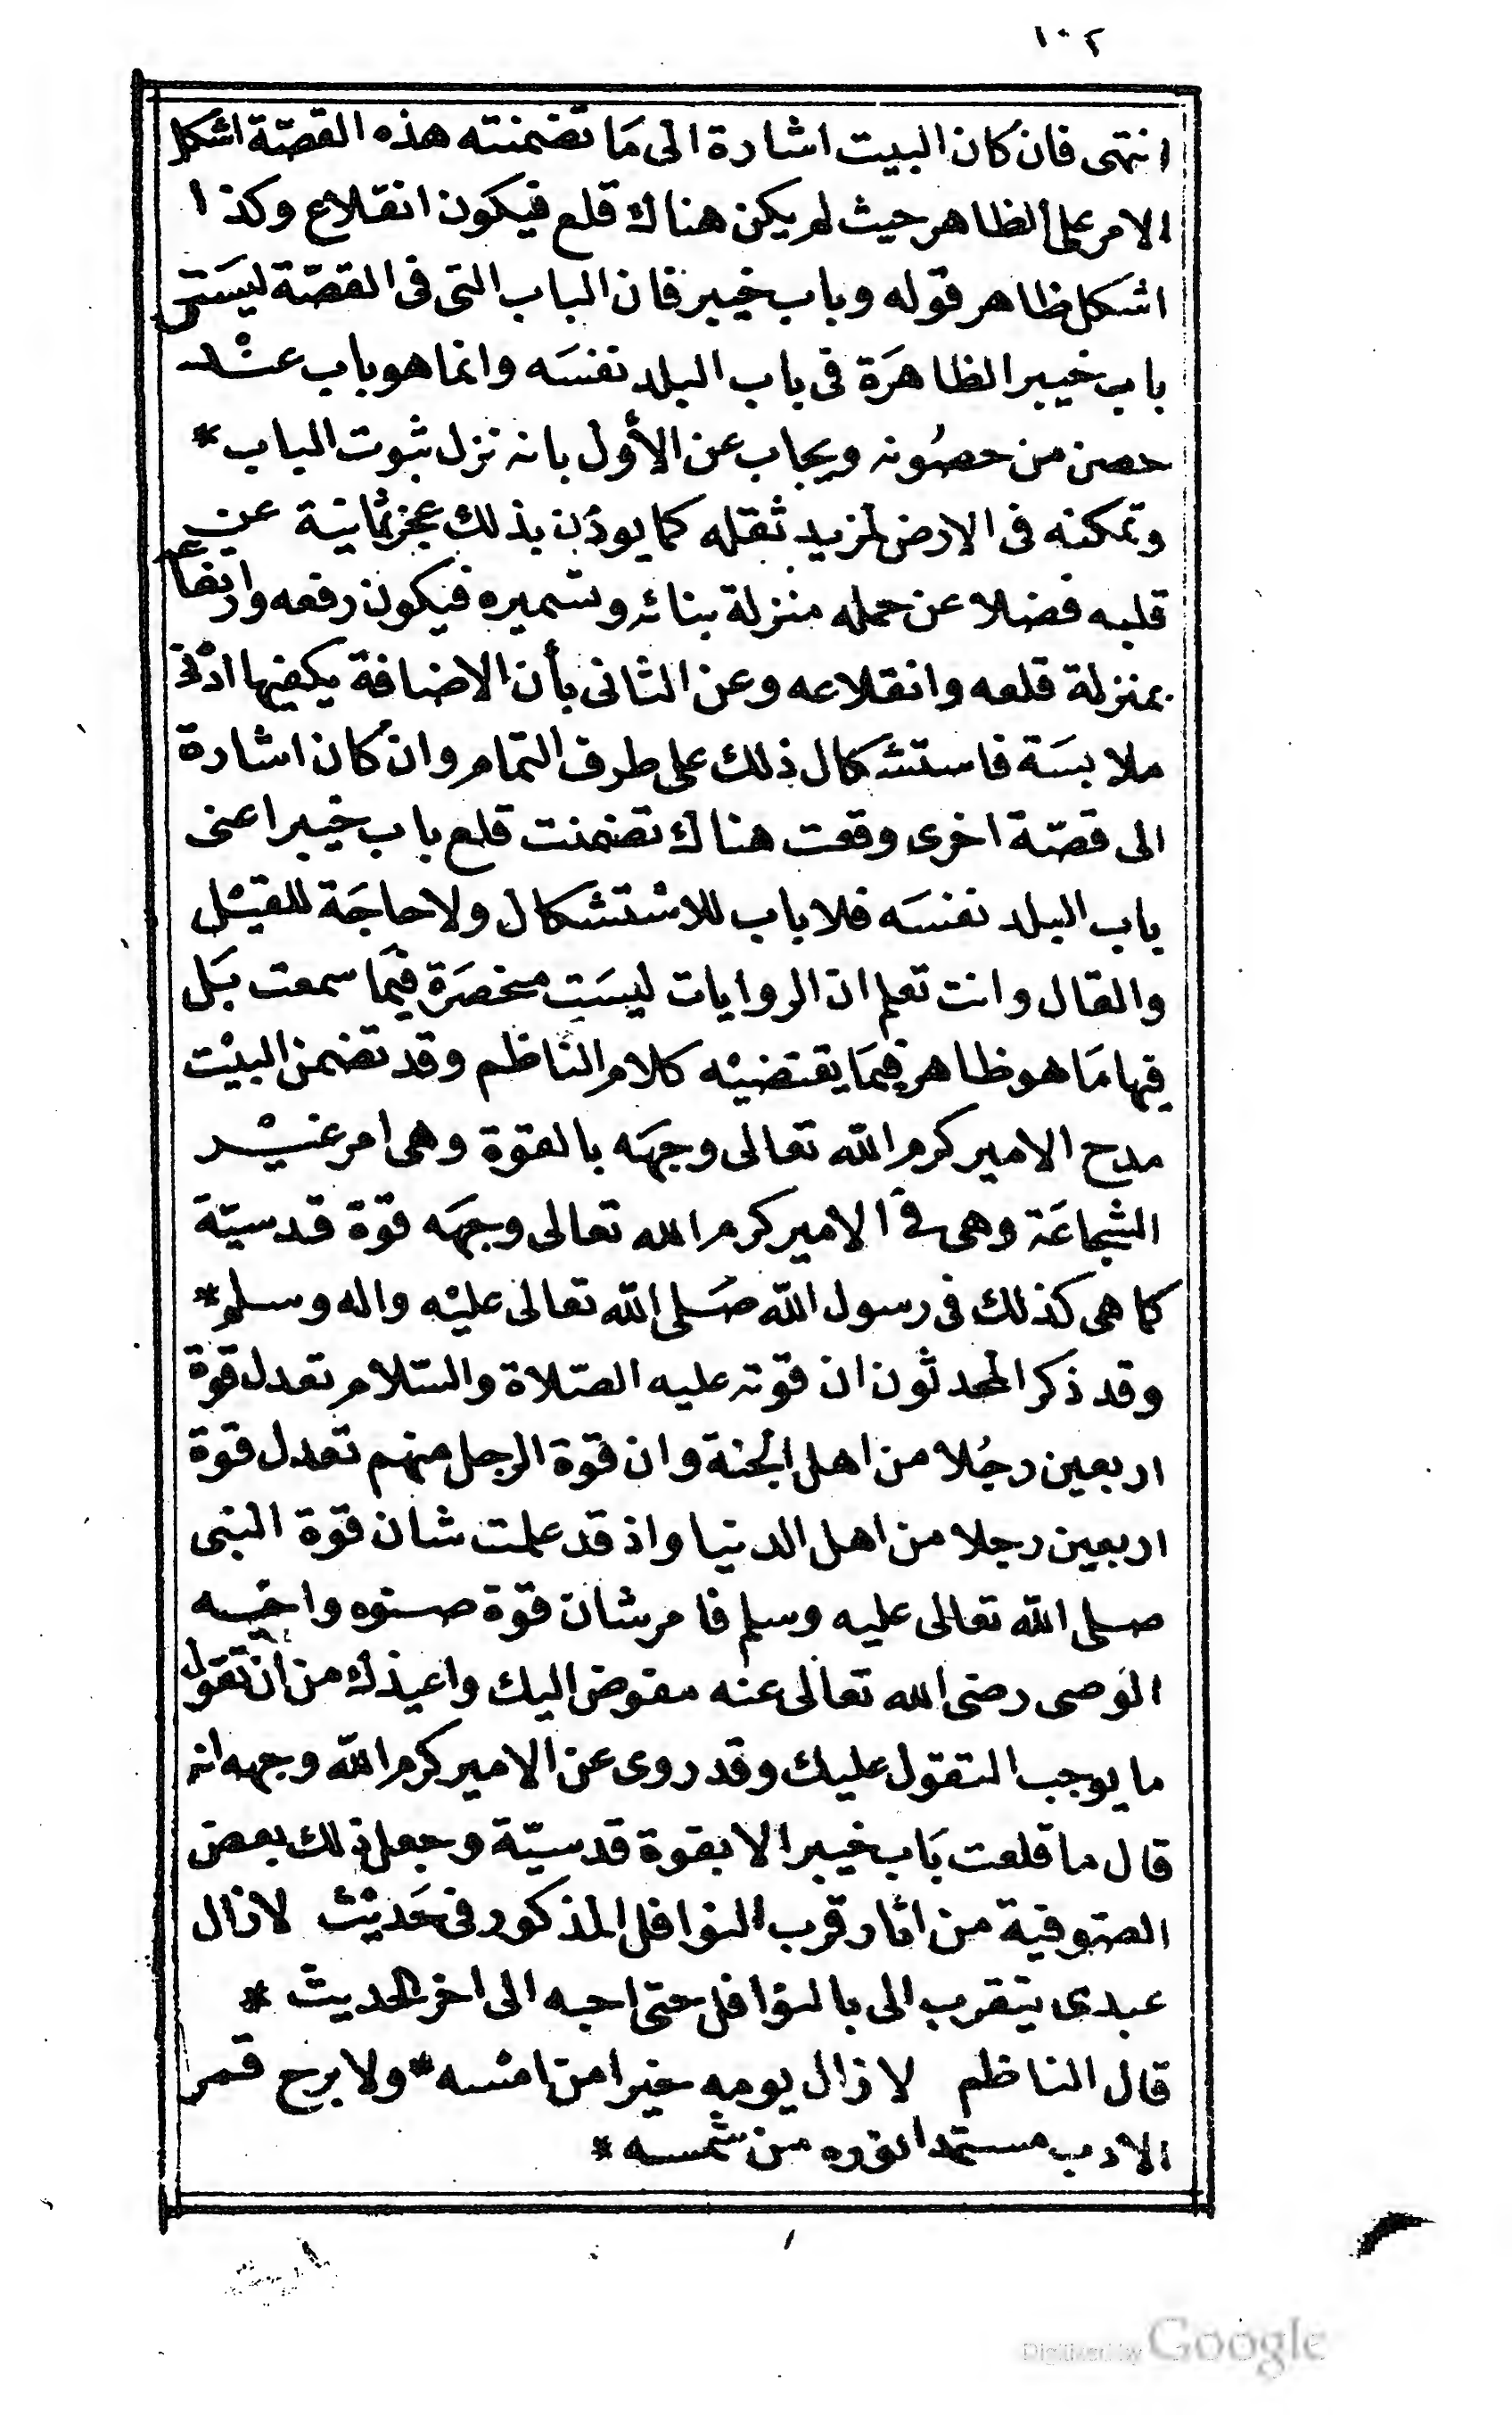 ١٠٢
انتهى فان كان البيت اشارة الى مَا تضمنته هذه القصّة اشكل
الامر على الظاهر حيث لم يكن هناك قلع فيكون انقلاع وكذا
اشكل ظاهر قوله وباب خيبر فان الباب التى فى القصّة ليسَتْ
باب خيبر الظاهَرَة فى باب البلد نفسَه وانما هو باب عنْد
حصن من حصُونه ويجاب عن الأول بانه نزل ثبوت الباب *
وتمكنه فى الارض لمزيد ثقله كما يوذن بذلك عجز ثمانيَة عن
قلبه فضلا عن حمله منزلة بنائه وتسميره فيكون رفعه وارتفاعه
بمنزلة قلعه وانقلاعه وعن الثانى بأن الاضافة يكفيها ادْنى
ملابسَة فاستشكال ذلك على طرف التمام وان كان اشارة
الى قصّة اخرى وقعت هناك تضمنت قلع باب خيبر اعنى
باب البلد نفسَه فلا باب للاسْتشكال ولا حاجَة للقيْل
والقال وانت تعلم ان الروايات ليسَت منحصَرة فيمَا سمعت بَل
فيها مَا هو ظاهر فيمَا يقتضيْه كلام الناظم وقد تضمن البيْت
مدح الامير كرم الله تعالى وجهَه بالقوّة وهى امر غيْر
الشجاعَة وهى فى الامير كرم الله تعالى وجهَه قوّة قدسيّة
كما هى كذلك فى رسول الله صَلى الله تعالى عليْه واله وسلم *
وقد ذكر المحدثون ان قوّته عليه الصّلاة والسّلام تعدل قوّة
اربعين رجُلا من اهل الجنة وان قوة الرجل منهم تعدل قوة
اربعين رجلا من اهل الدنيا واذ قد علمت شان قوة النبى
صلى الله تعالى عليه وسلم فامر شان قوّة صنوه واخيْه
الوصى رضى الله تعالى عنه مفوض اليك واعيذك من ان تقول
ما يوجب التقول عليك وقد روى عن الامير كرم الله وجهه انه
قال ما قلعت بَاب خيبر الا بقوة قدسيّة وجعل ذلك بعض
الصّوفية من اثار قرب النوافل المذكور فى حَديْث لا زال
عبدى يتقرب الى بالنوافل حتى احبه الى اخر الحديث *
قال الناظم لا زال يومه خيرا من امْسه * ولا برح قمر
الادب مستمدا نوره من شمسه *
Digitized by Google